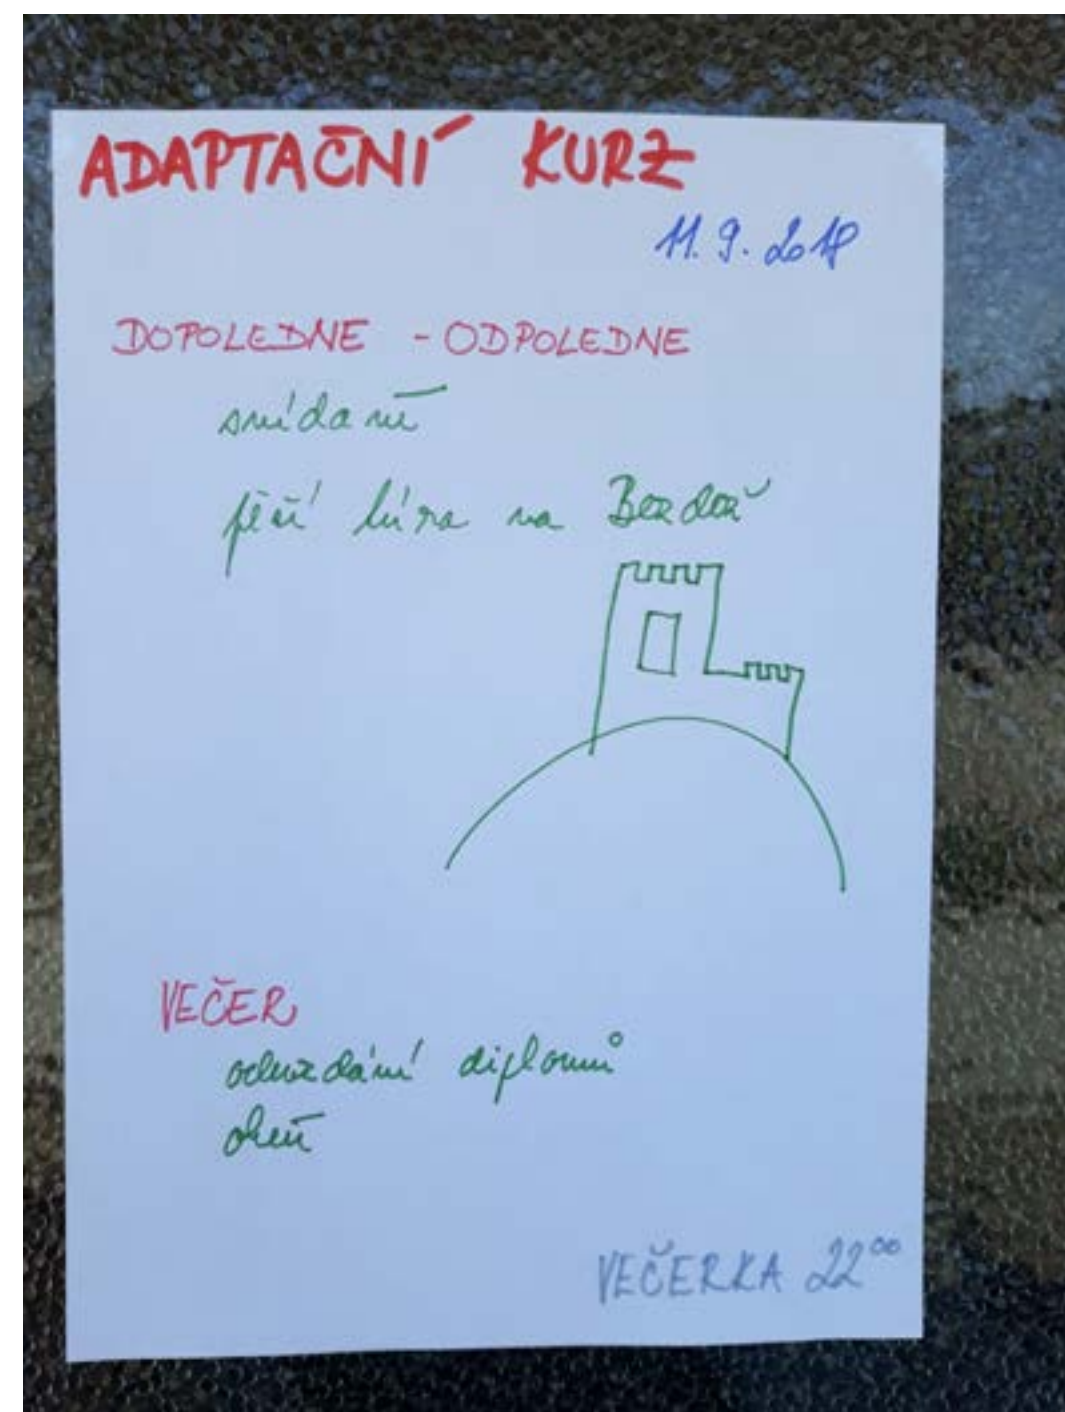 ADAPTAČNÍ KURZ
11. 9. 2018
DOPOLEDNE - ODPOLEDNE
snídaně
pěší túra na Bezděz
VEČER
odevzdání diplomů
oheň
VEČERKA 22⁰⁰